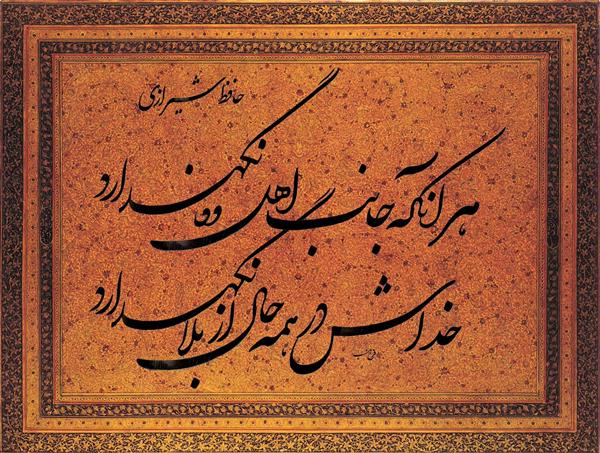 حافظ شیرازی
هر آنکه جانب اهل وفا نگهدارد
خداش در همه حال از بلا نگهدارد